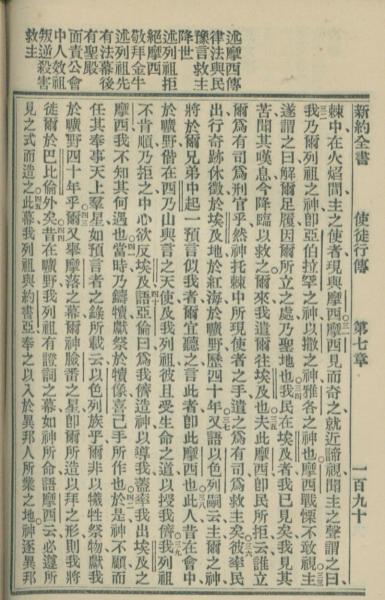 新約全書 使徒行傳 第七章 一百九十
述摩西傳
律法與民
豫言救主
降世
述列祖拒
絕摩西
敬拜金牛
述列祖先
有法幕後
有聖殿
而責公會
中人效祖
叛逆殺害
救主
棘中在火焰間主之使者現與摩西摩西見而奇之就近諦視聞主之聲謂之曰
我乃爾列祖之神卽亞伯拉罕之神以撒之神雅各之神也摩西戰慄不敢視主
遂謂之曰解爾足履因爾所立之處乃聖地也我民在埃及者我已見矣我見其
苦聞其嘆息今降臨以救之爾來我遣爾往埃及也夫此摩西卽民所拒云誰立
爾爲有司爲刑官乎然神托棘中所現使者之手遣之爲有司爲救主矣彼率民
出行奇跡休徵於埃及地於紅海於曠野歷四十年又語以色列嗣云主爾之神
將於爾兄弟中起一預言似我者爾宜聽之言此者卽此摩西也此人昔在會中
於曠野偕在西乃山與言之天使及我列祖彼且受生命之道以授我儕我列祖
不肯順乃拒之中心欲反埃及語亞倫曰爲我儕造神以導我蓋率我出埃及之
摩西我不知其何遇也當時乃鑄犢獻祭於犢像喜己手所作也於是神不顧而
任其奉事天上羣星如預言者之錄所載云以色列族乎爾非以犧牲祭物獻我
於曠野四十年乎爾又舉摩落之幕爾神臉番之星卽爾所造以拜之形則我將
徙爾於巴比倫外矣昔在曠野我列祖有證詞之幕如神所命語摩西云必遵所
見之式而造之此幕我列祖與約書亞奉之以入於異邦人所業之地神逐異邦